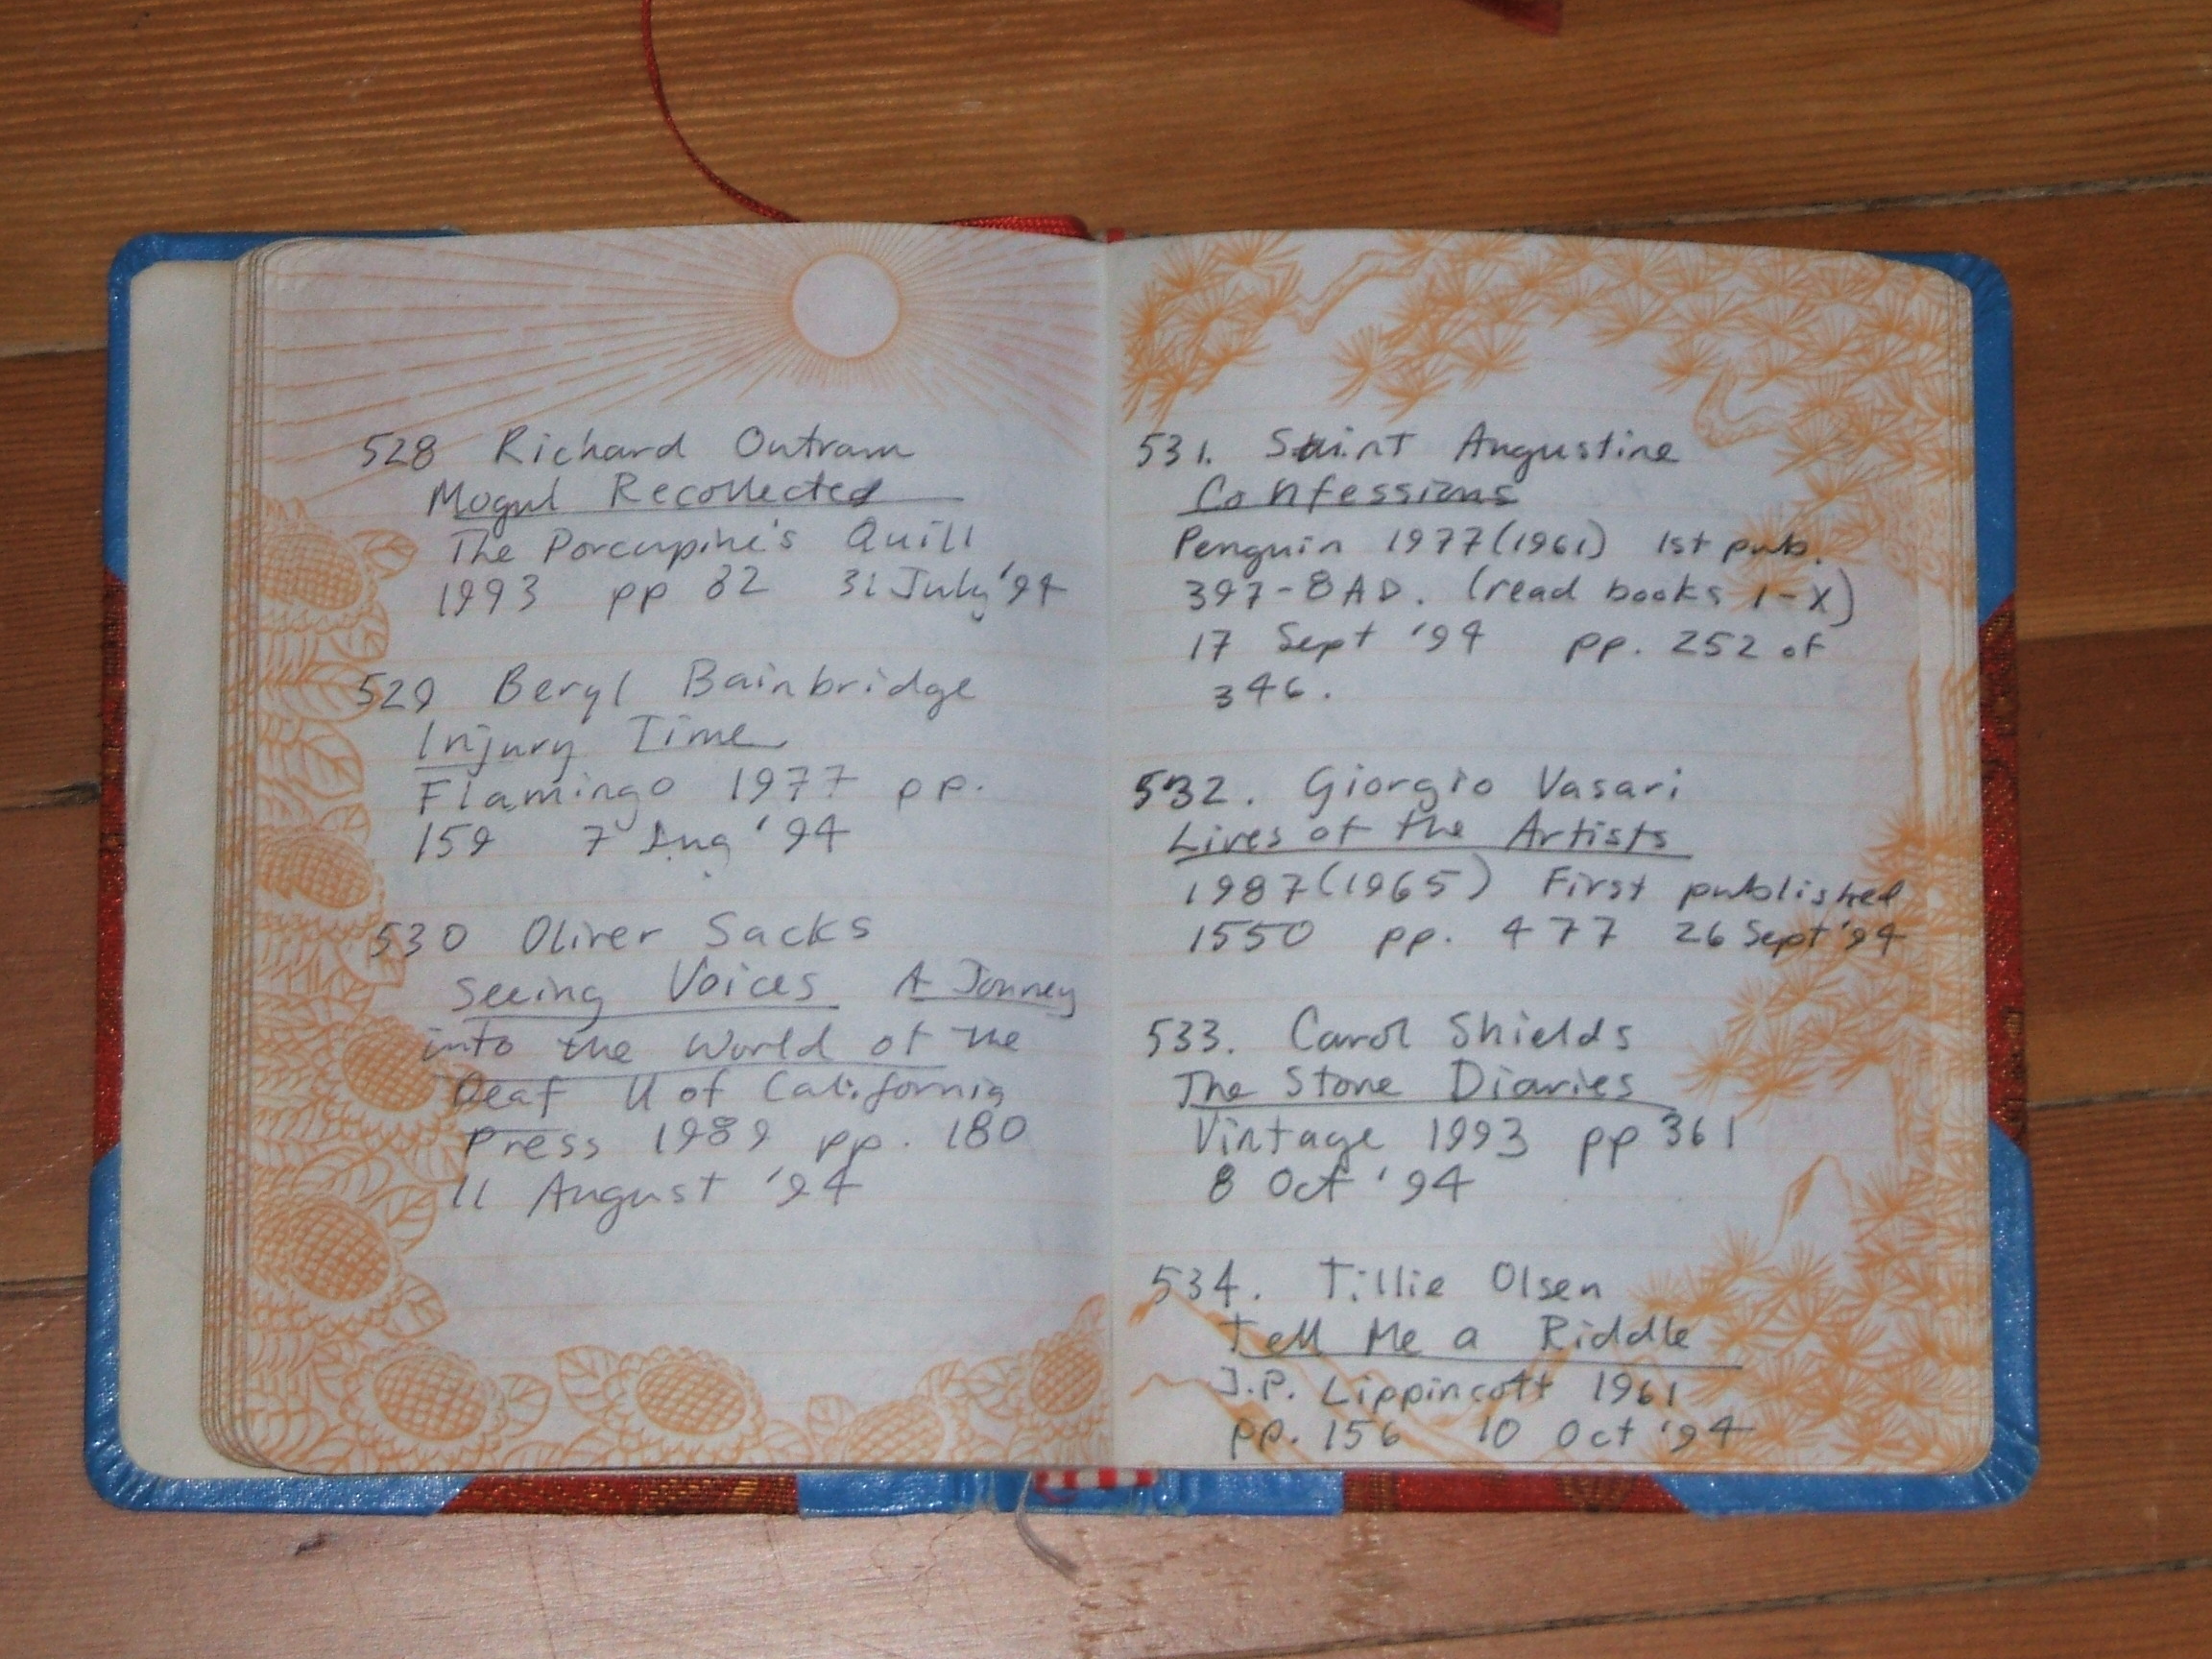 528 Richard Outram
Mogul Recollected
The Porcupine's Quill
1993 pp 82 31 July '94
529 Beryl Bainbridge
Injury Time
Flamingo 1977 pp.
159 7 Aug '94
530 Oliver Sacks
Seeing Voices A Jonney
into the World of the
Deaf U of California
Press 1989 pp. 180
11 August '94
531. Saint Augustine
Confessions
Penguin 1977 (1961) 1st pub.
397-8 AD. (read books 1-X)
17 Sept '94 pp. 252 of
346.
532. Giorgio Vasari
Lives of the Artists
1987 (1965) First published
1550 pp. 477 26 Sept '94
533. Carol Shields
The Stone Diaries
Vintage 1993 pp 361
8 Oct '94
534. Tillie Olsen
Tell Me a Riddle
J.P. Lippincott 1961
pp. 156 10 Oct '94